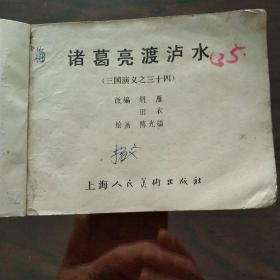 诸葛亮渡泸水
(三国演义之三十四)
改编 胡雁
田衣
绘画 陈光镒
上海人民美术出版社